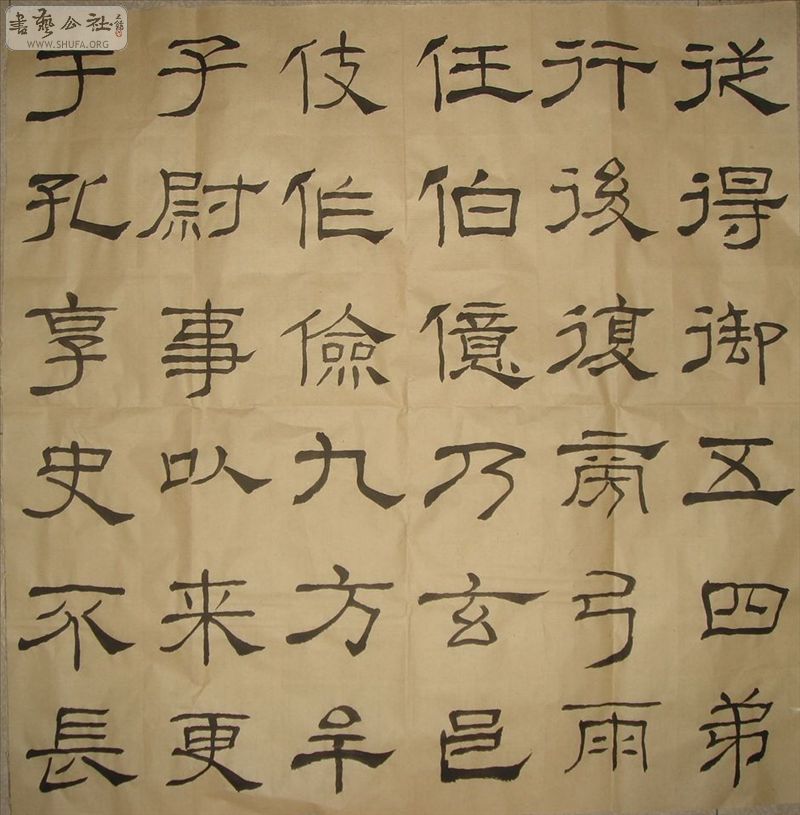 書藝公社
WWW.SHUFA.ORG
従得御五四弟
行後復房弓雨
任伯億乃玄邑
伎作儉九方年
子尉事以来更
于孔享史不長